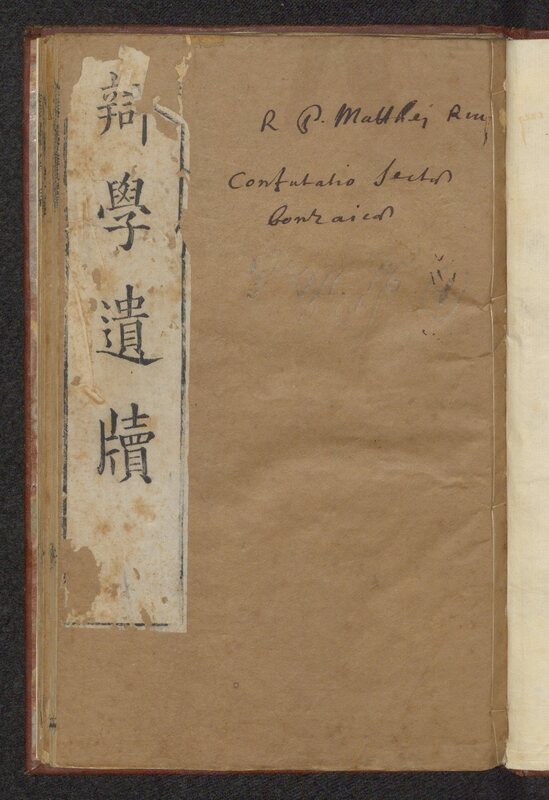 辯學遺牘
R P. Matthej Ricij
Confutatio Sectæ
Bonzaicæ